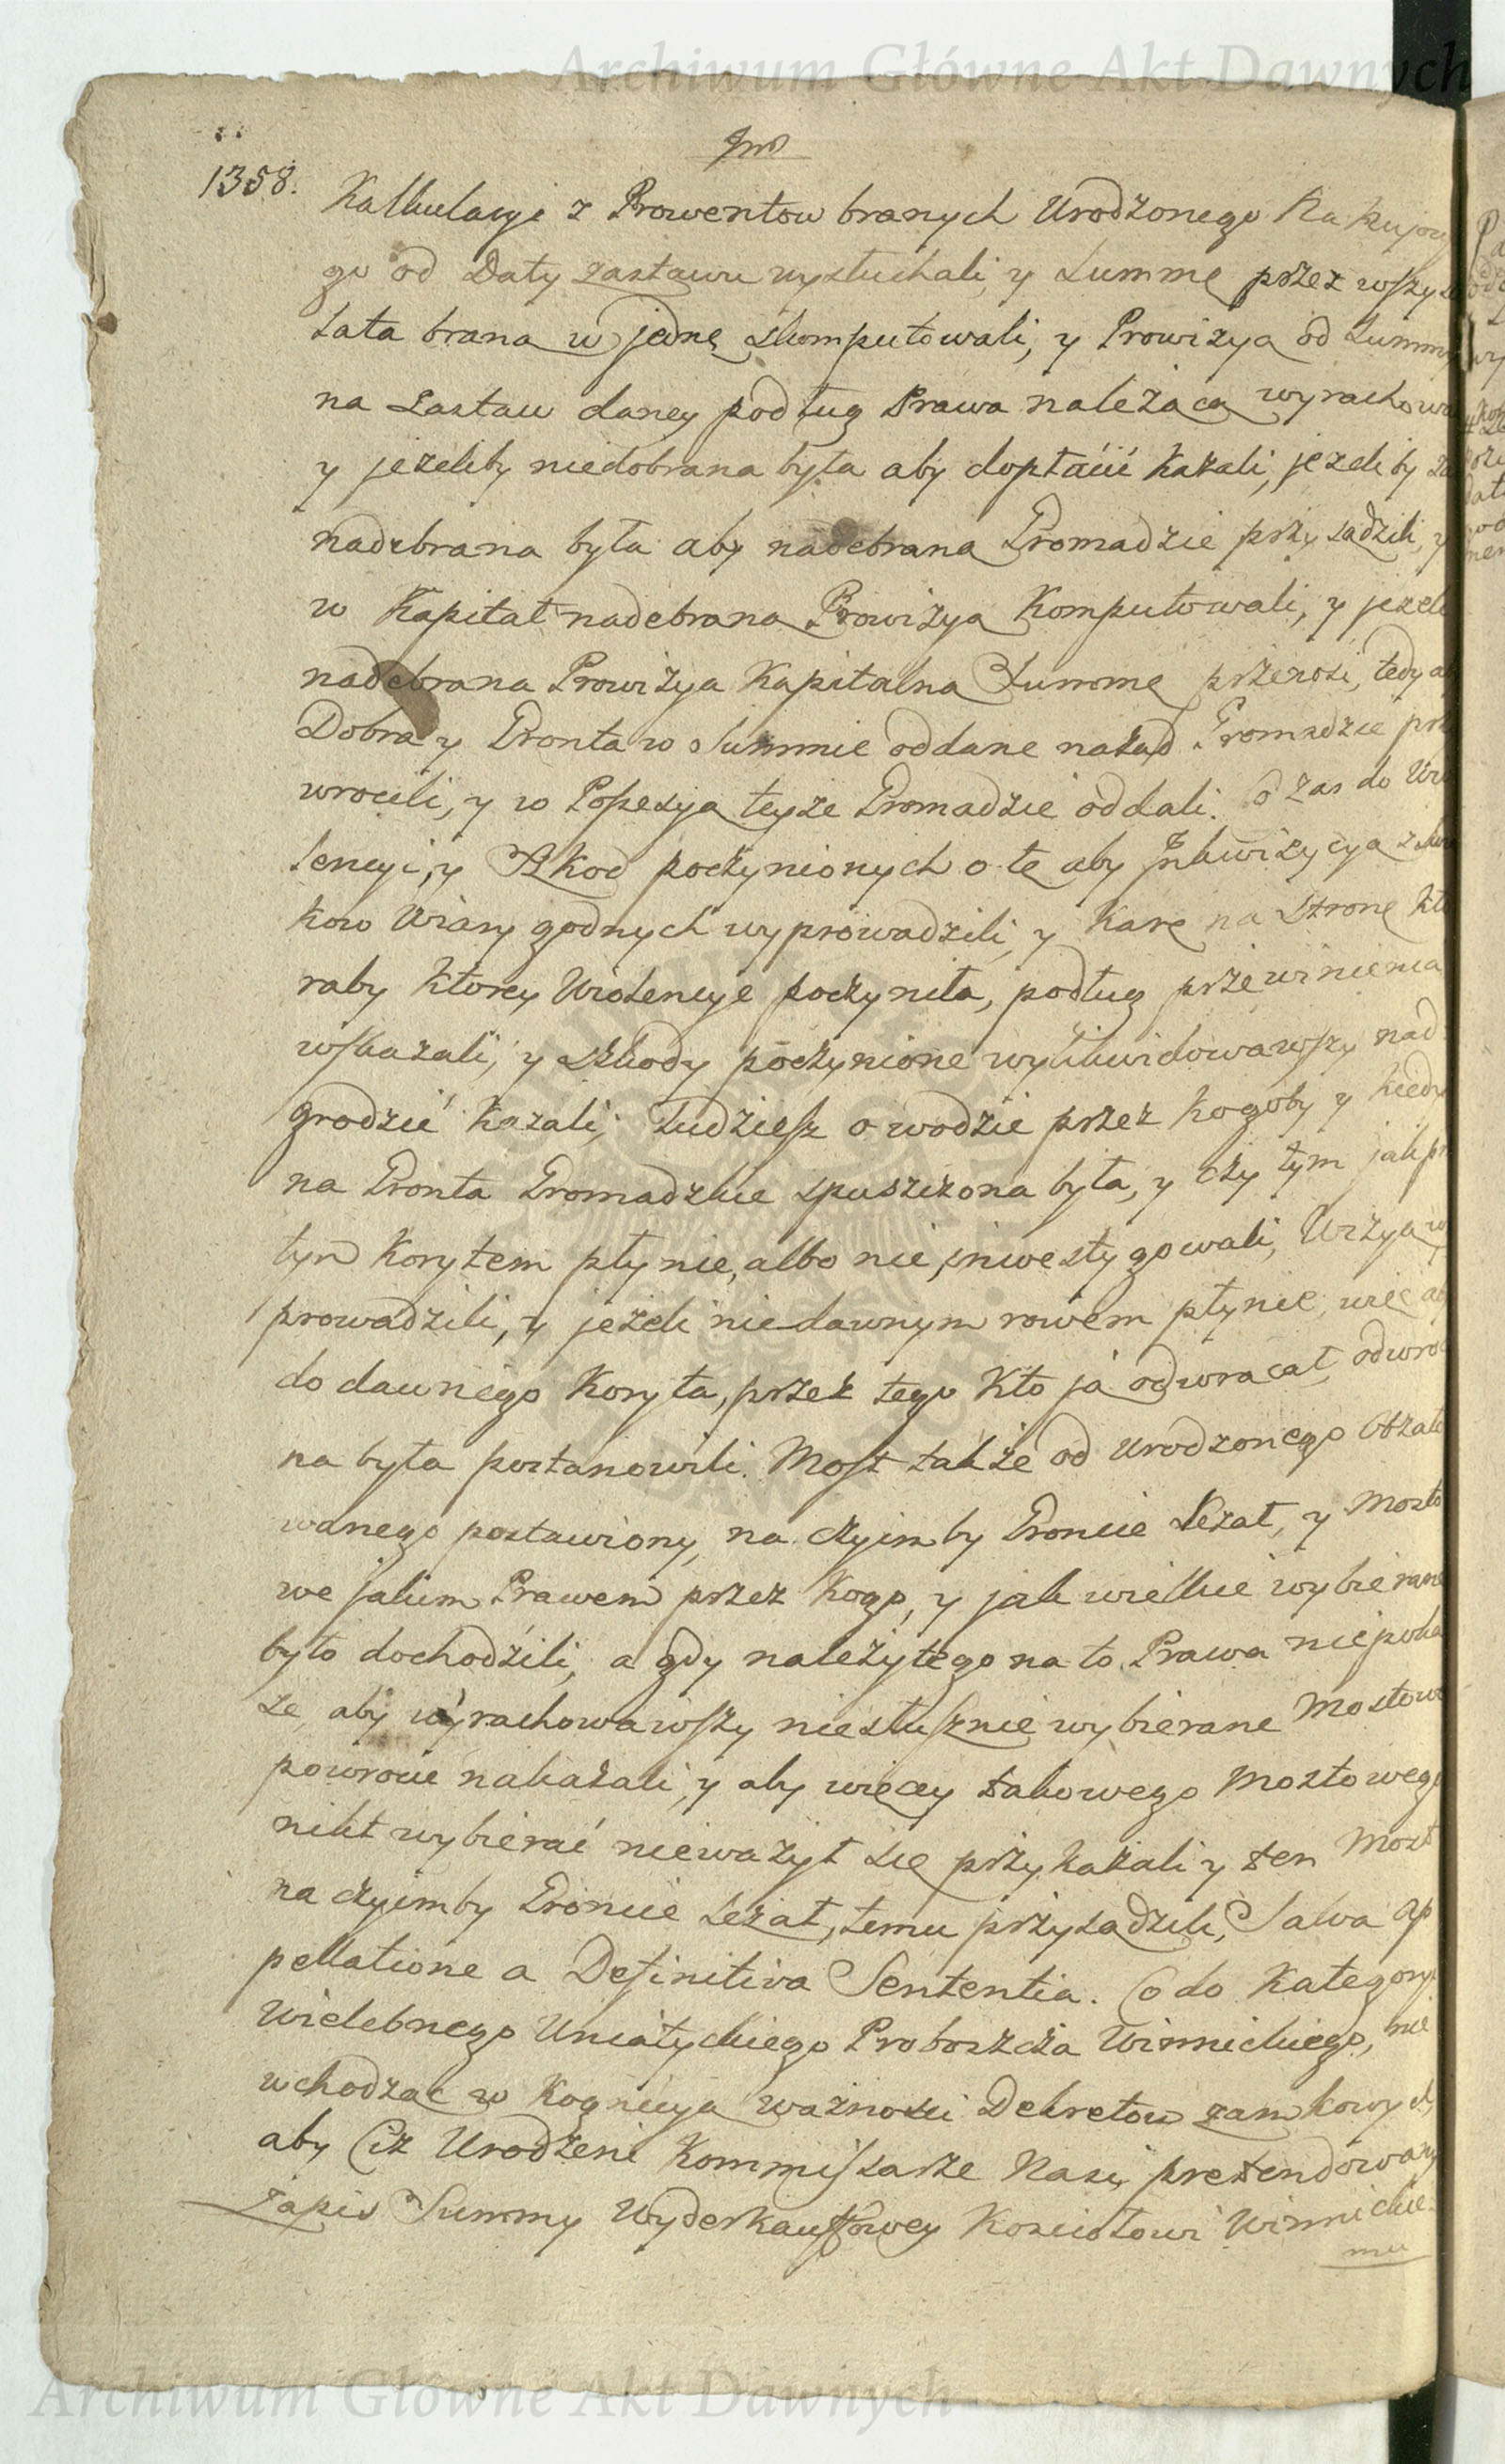 Archiwum Główne Akt Dawnych
1358.
Kalkulacyi z Prowentow branych Urodzonego
go od Daty zastawu wysłuchali, y Summę przez wszys
Lata braną w jednę skomputowali, y Prowizyą od Summy
na zastaw daney podług Prawa należącą wyrachowa
y jezeliby niedobrana była aby dopłacić kazali, jezeliby za
nadebrana była aby nadebraną Gromadzie przysądzili, y
w Kapitał nadebraną Prowizyą Komputowali, y jezeli
nadebrana Prowizya Kapitalną Summę przerosi, tedy ab
Dobra y Gronta w Summie oddane nazad Gromadzie prz
wrocili, y w Possesyą teyze Gromadzie oddali. Co zas do Wio
lencyi, y Szkod poczynionych o te aby Inkwizycyą z
kow Wiary godnych wyprowadzili, y karę na Stronę kto
raby ktorey Wiolencye poczyniła, podług przewinienia
wskazali, y Szkody poczynione wylikwidowawszy nad
grodzić kazali; Tudziesz o wodzie przez kogoby y kiedy
na Gronta Gromadzkie spuszczona była, y czy tym jak pr
tym Korytem płynie, albo nie, inwestygowali, Wizyą wy
prowadzili, y jezeli niedawnym rowem płynie, więc aby
do dawnego Koryta, przez tego kto ją odwracał, odwroco
na była postanowili. Most także od Urodzonego Obzało
wanego postawiony, na czyimby Groncie Lezał, y Mosto
we jakim Prawem przez kogo, y jak wielkie wybierane
było dochodzili, a gdy należytego na to Prawa niepoka
ze, aby wyrachowawszy niesłusznie wybierane Mostowe
powrocić nakazali, y aby więcey takowego Mostowego
nikt wybierać nieważył się przykazali y ten Most
na czyimby Groncie Lezał, temu przysądzili, Salva Ap
pellatione a Definitiva Sententia. Co do Kategoryi
Wielebnego Uniatyckiego Proboszcza Winnickiego, nie
wchodząc w Kognicyą ważnosci Dekretow zamkowych
aby Ciz Urodzeni Kommissarze Nasi pretendowany
Zapis Summy Wyderkauffowey Kosciołowi Winnickie-
mu
Archiwum Główne Akt Dawnych